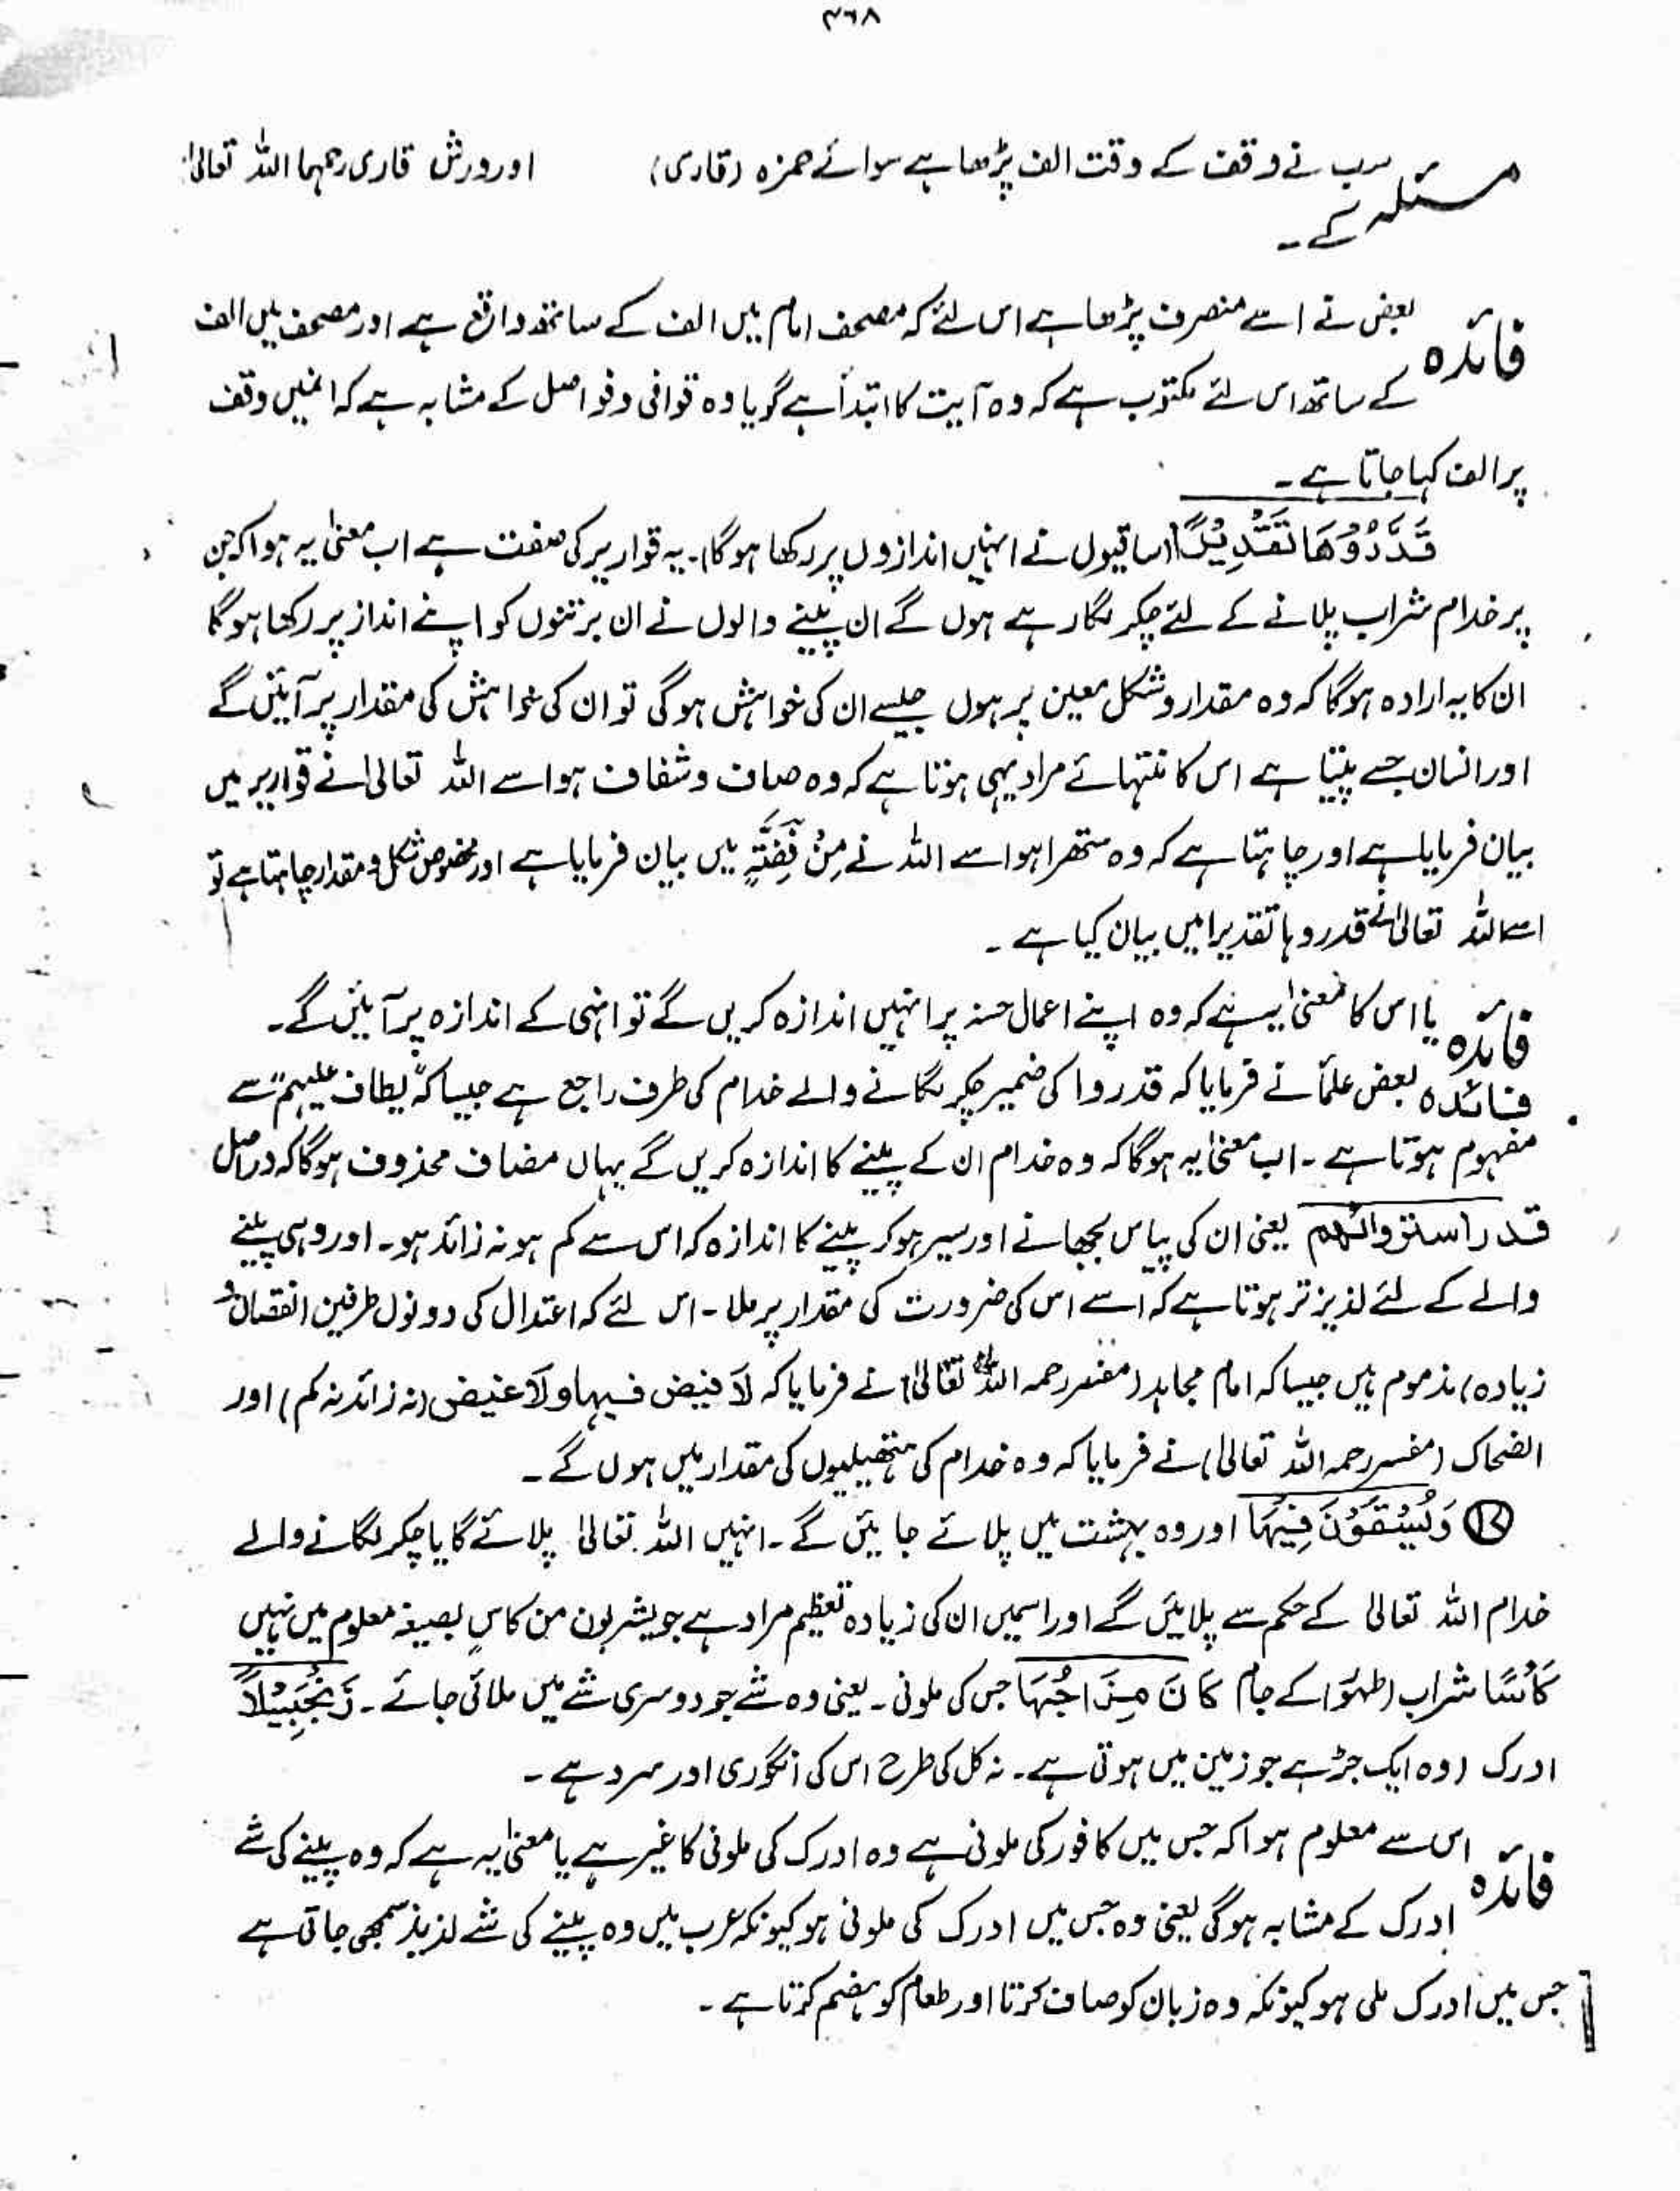 ۳۶۸
مسئلہ سب نے وقف کے وقت الف پڑھا ہے سوائے حمزہ (قاری) اور ورش قاری رحمہما اللہ تعالیٰ
کے ۔
فائدہ بعض نے اسے منصرف پڑھا ہے اس لئے کہ مصحف امام میں الف کے ساتھ واقع ہے اور مصحف میں الف
کے ساتھ اس لئے مکتوب ہے کہ وہ آیت کا ابتدأ ہے گویا وہ قوافی و فواصل کے مشابہ ہے کہ انہیں وقف
پر الف کہا جاتا ہے ۔
قَدَّرُوْهَا تَقْدِیْرًا (ساقیوں نے انہیں اندازوں پر رکھا ہوگا)۔ یہ قواریر کی صفت ہے اب معنیٰ یہ ہوا کہ جن
پر خدام شراب پلانے کے لئے چکر لگا رہے ہوں گے ان پینے والوں نے ان برتنوں کو اپنے انداز پر رکھا ہوگا
ان کا یہ ارادہ ہوگا کہ وہ مقدار و شکل معین پر ہوں جیسے ان کی خواہش ہوگی تو ان کی خواہش کی مقدار پر آئیں گے
اور انسان جسے پیتا ہے اس کا منتہائے مراد یہی ہوتا ہے کہ وہ صاف و شفاف ہو اسے اللہ تعالیٰ نے قواریر میں
بیان فرمایا ہے اور چاہتا ہے کہ وہ ستھرا ہو اسے اللہ نے مِنْ فِضَّۃٍ میں بیان فرمایا ہے اور مخصوص شکل و مقدار چاہتا ہے تو
اسے اللہ تعالیٰ نے قدروہا تقدیرا میں بیان کیا ہے ۔
فائدہ یا اس کا معنیٰ یہ ہے کہ وہ اپنے اعمال حسنہ پر انہیں اندازہ کریں گے تو انہی کے اندازہ پر آئیں گے۔
فائدہ بعض علمأ نے فرمایا کہ قدروا کی ضمیر چکر لگانے والے خدام کی طرف راجع ہے جیسا کہ "یطاف علیہم" سے
مفہوم ہوتا ہے ۔ اب معنیٰ یہ ہوگا کہ وہ خدام ان کے پینے کا اندازہ کریں گے یہاں مضاف محذوف ہوگا کہ دراصل
قدر استروائہم یعنی ان کی پیاس بجھانے اور سیر ہو کر پینے کا اندازہ کہ اس سے کم ہو نہ زائد ہو۔ اور وہی پینے
والے کے لئے لذیز تر ہوتا ہے کہ اسے اس کی ضرورت کی مقدار پر ملا ۔ اس لئے کہ اعتدال کی دونوں طرفین (نقصان و
زیادہ) مذموم ہیں جیسا کہ امام مجاہد (مفسر رحمہ اللہ تعالیٰ) نے فرمایا کہ لَا فیض فیہا ولَا غیض (نہ زائد نہ کم) اور
الضحاک (مفسر رحمہ اللہ تعالیٰ) نے فرمایا کہ وہ خدام کی ہتھیلیوں کی مقدار میں ہوں گے ۔
⑰ وَیُسْقَوْنَ فِیْہَا اور وہ بہشت میں پلائے جائیں گے ۔ انہیں اللہ تعالیٰ پلائے گا یا چکر لگانے والے
خدام اللہ تعالیٰ کے حکم سے پلائیں گے اور اسمیں ان کی زیادہ تعظیم مراد ہے جو یشربون من کاسٍ بصیغہ معلوم میں نہیں
کَاْسًا شراب (طہور) کے جام کَانَ مِزَاجُہَا جس کی ملونی ۔ یعنی وہ شے جو دوسری شے میں ملائی جائے ۔ زَنْجَبِیْلًا
ادرک (وہ ایک جڑ ہے جو زمین میں ہوتی ہے ۔ نہ کل کی طرح اس کی انگوری اور سرد ہے ۔
فائدہ اس سے معلوم ہوا کہ جس میں کافور کی ملونی ہے وہ ادرک کی ملونی کا غیر ہے یا معنیٰ یہ ہے کہ وہ پینے کی شے
ادرک کے مشابہ ہوگی یعنی وہ جس میں ادرک کی ملونی ہو کیونکہ عرب میں وہ پینے کی شے لذیذ سمجھی جاتی ہے
جس میں ادرک ملی ہو کیونکہ وہ زبان کو صاف کرتا اور طعام کو ہضم کرتا ہے ۔